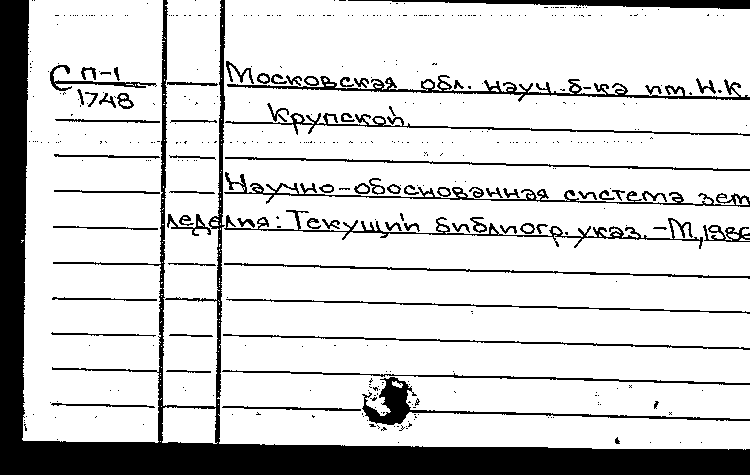 С П-1
1748
Московская обл. науч. б-ка им. Н.К.
Крупской.
Научно-обоснованная система зем
леделия: Текущий библиогр. указ. -М, 198